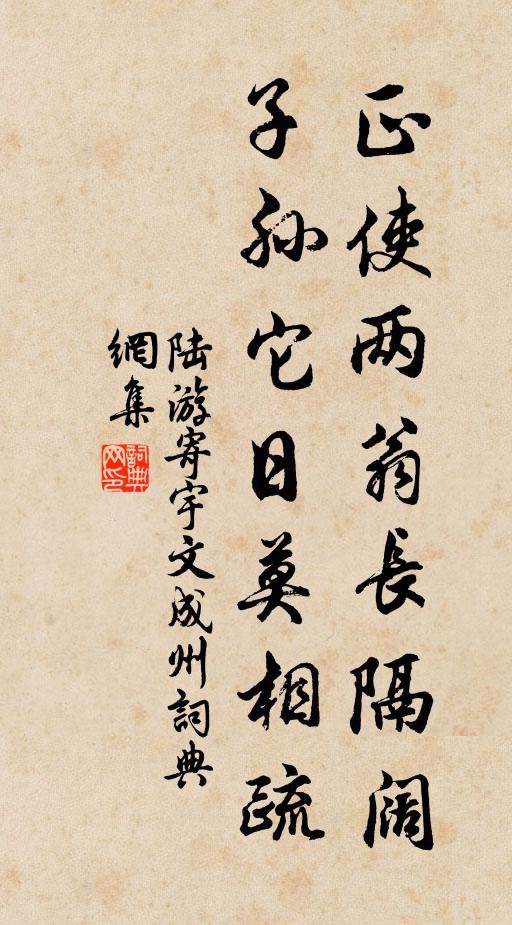 正使两翁長隔阔
子孙它日莫相疏
陆游寄宇文成州詞典
網集
詞典
网印